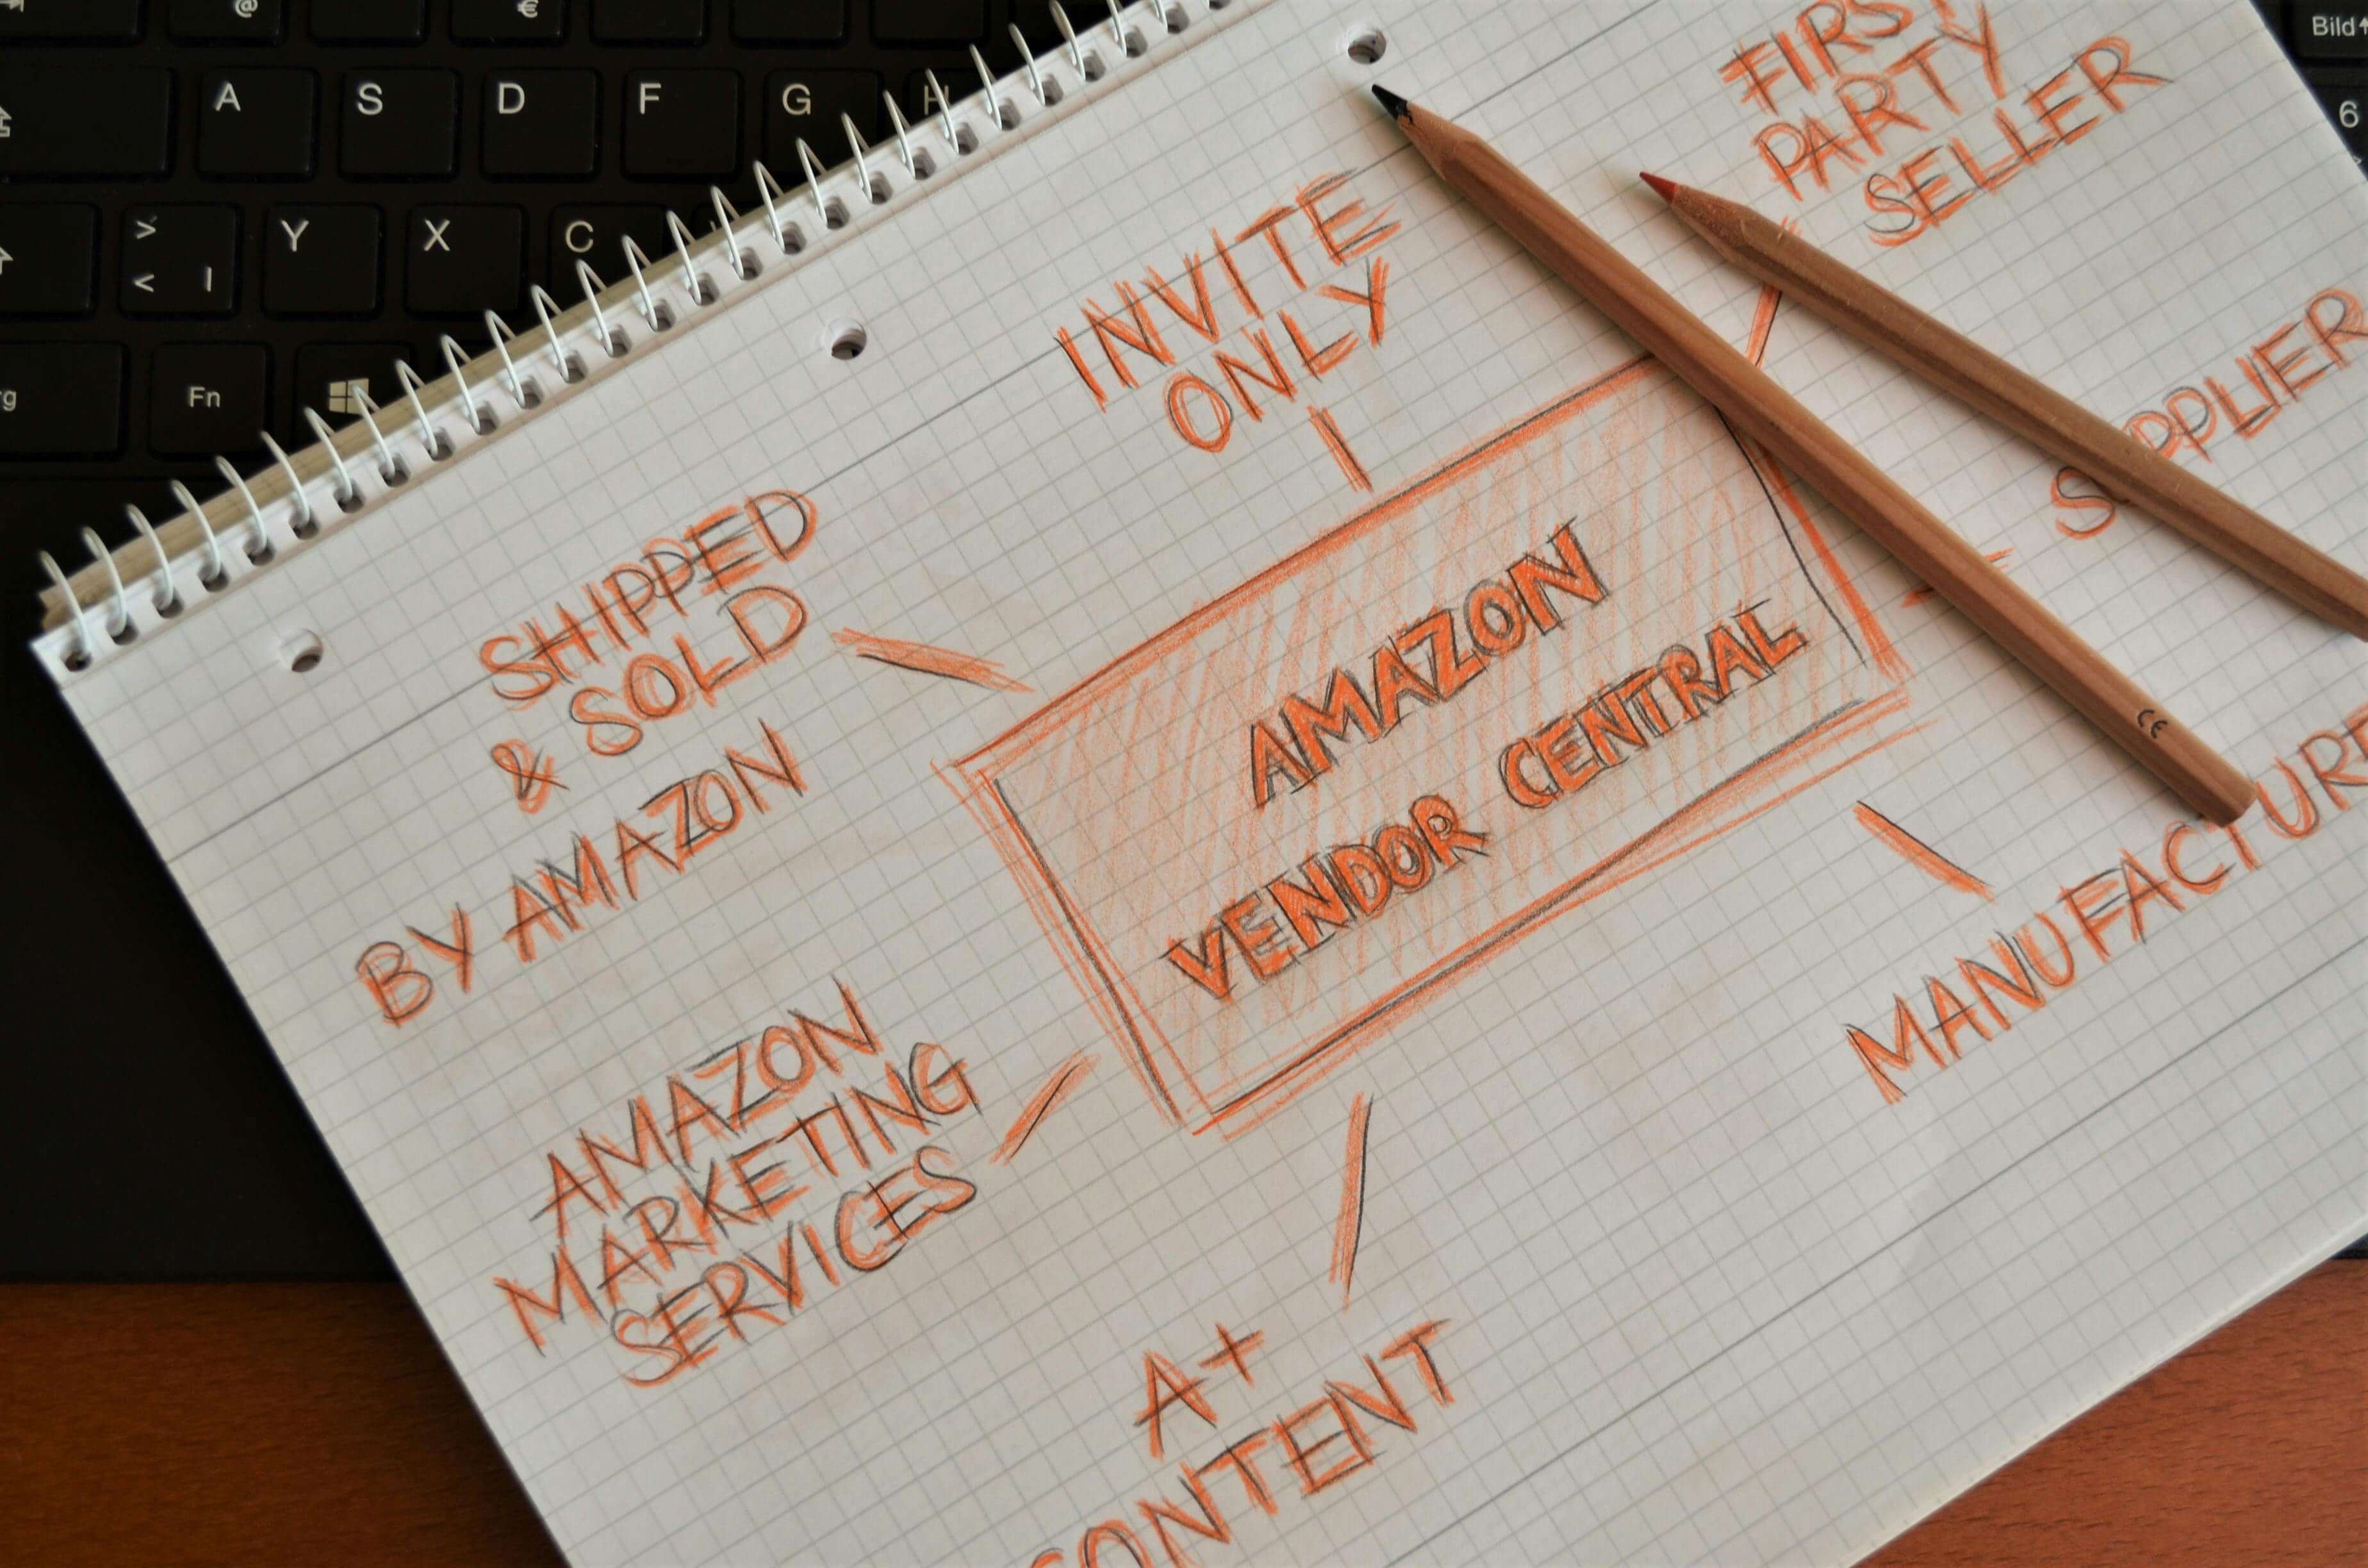 @
€
A
S
D
F
G
H
>
<
|
Y
X
C
Fn
Bild
6
FIRST
PARTY
SELLER
INVITE
ONLY
SUPPLIER
SHIPPED
& SOLD
BY AMAZON
AMAZON
VENDOR CENTRAL
MANUFACTURE
AMAZON
MARKETING
SERVICES
A+
CONTENT
CE